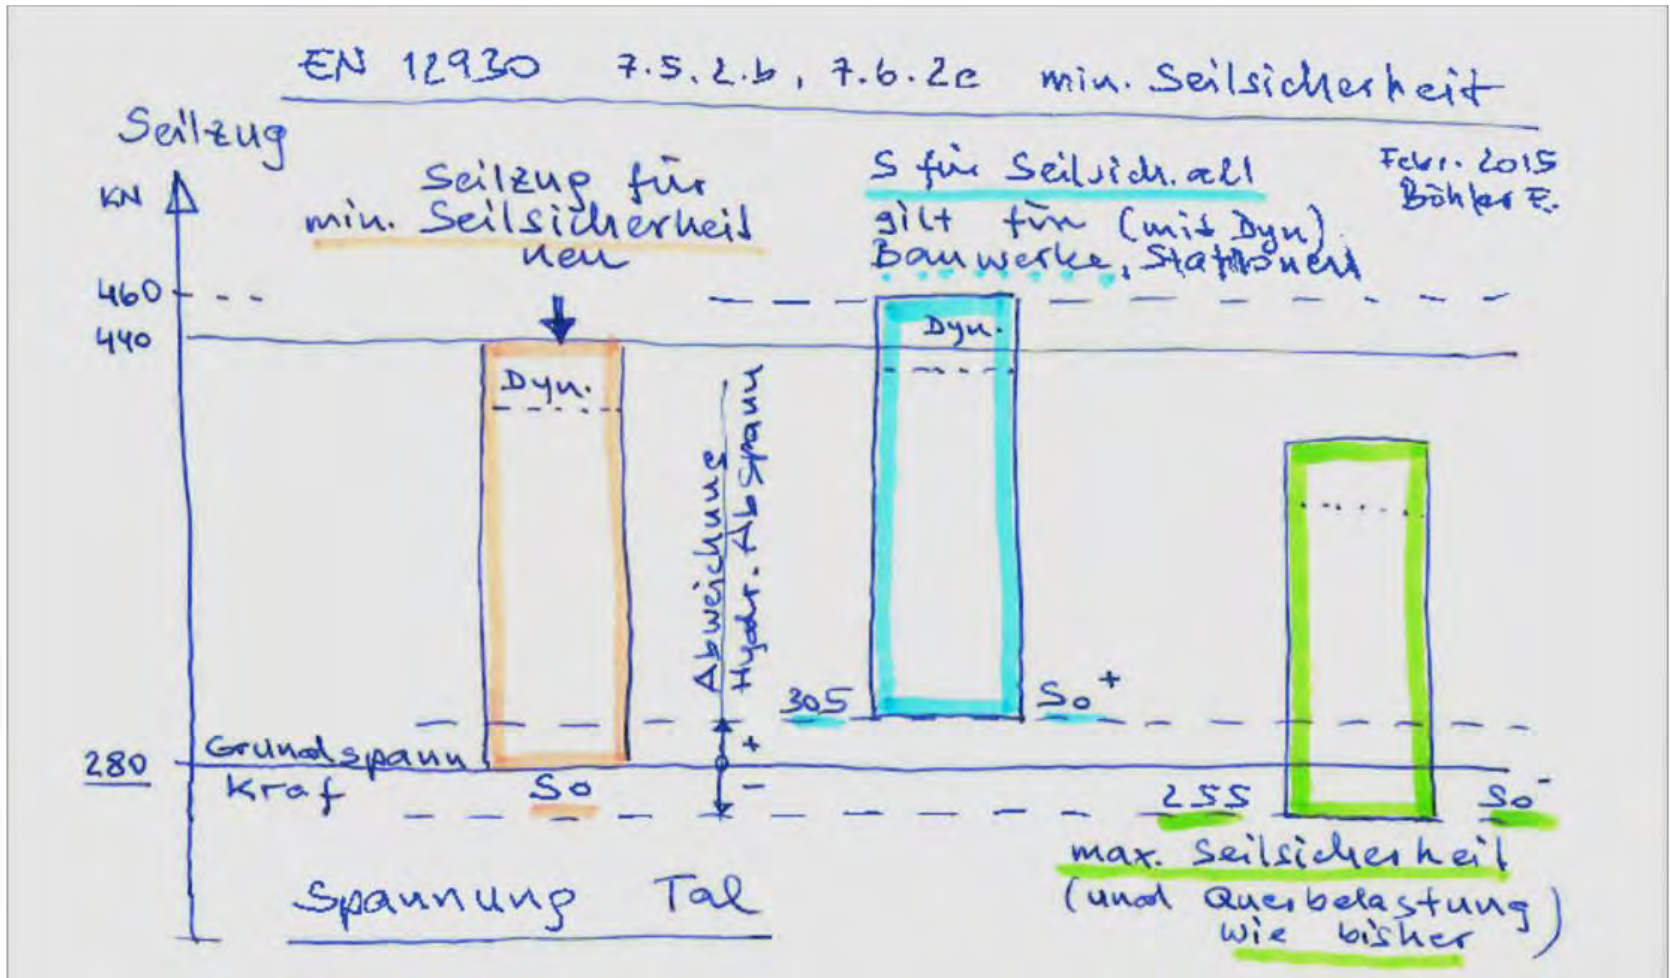 EN 12930 7.5.2.b, 7.6.2c min. Seilsicherheit
Seilzug
KN
Febr. 2015
Böhler E.
Seilzug für
min. Seilsicherheit
neu
S für Seilsich. alt
gilt für (mit Dyn)
Bauwerke, Stationen
460
440
Dyn.
Dyn.
Abweichung
Hydr. Abspann
305
So+
+
-
280
Grundspann
Kraf
So
255
So-
max. Seilsicherheit
(und Querbelastung)
wie bisher
Spannung Tal